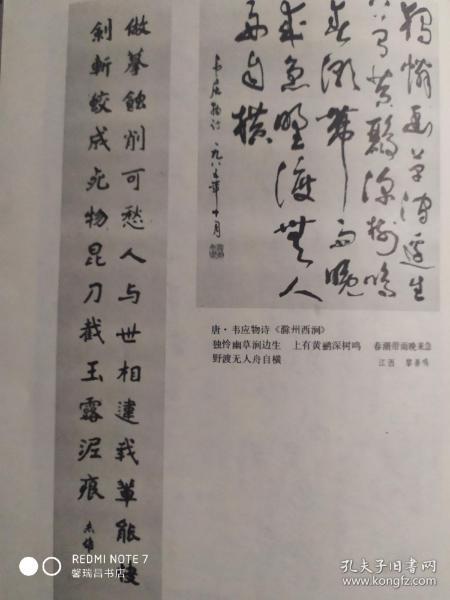 獨憐幽草澗邊生
上有黄鸝深樹鳴
春潮帶雨晚
来急野渡無人
舟自横
韦应物诗 一九八五年十月
做摹蝕削可愁人与世相違我輩能快
剑斬蛟成死物昆刀截玉露泥痕
唐·韦应物诗《滁州西涧》
独怜幽草涧边生 上有黄鹂深树鸣 春潮带雨晚来急
野渡无人舟自横
江西
REDMI NOTE 7
馨瑞昌书店
孔夫子旧书网
www.kongfz.com